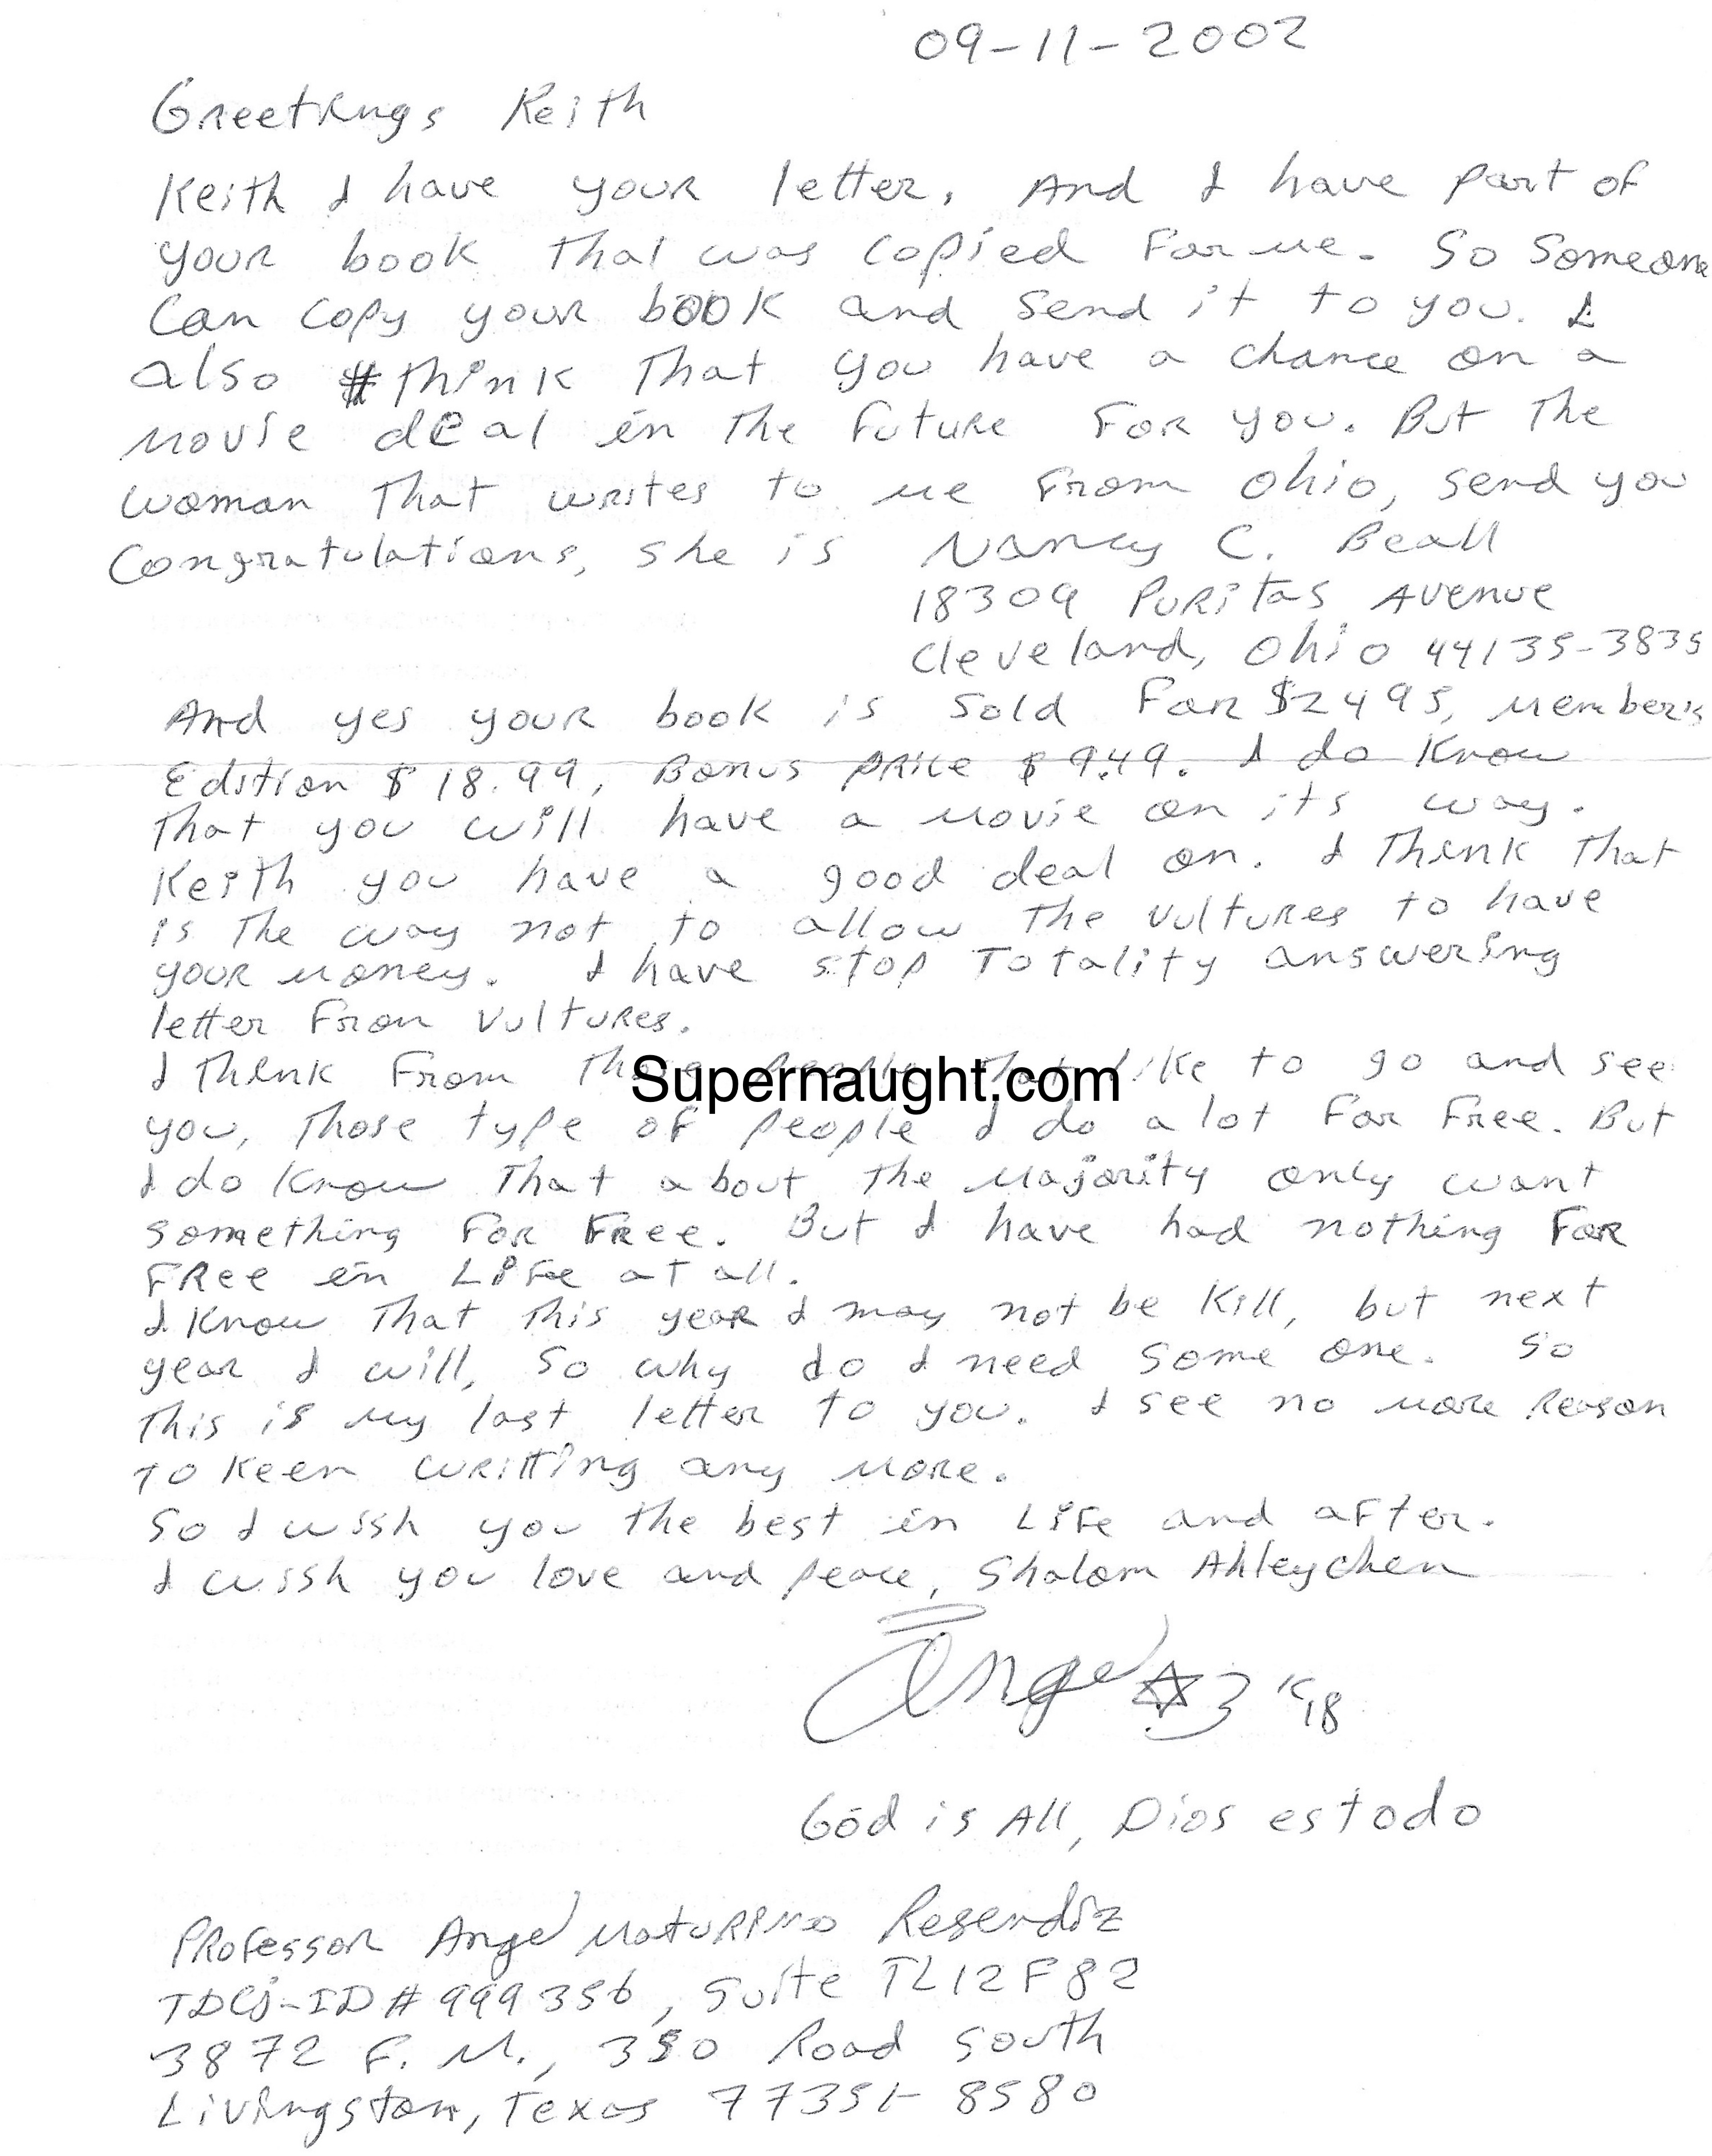 09-11-2002
Greetings Keith
Keith I have your letter, And I have part of
your book that was copied for me. So Someone
Can copy your book and send it to you. I
also think that you have a chance on a
movie deal in the future for you. But the
woman that writes to me from Ohio, send you
Congratulations, she is Nancy C. Beall
18309 Puritas Avenue
Cleveland, Ohio 44135-3835
And yes your book is sold for $2495, member's
Edition $18.99, Bonus price $9.49. I do know
that you will have a movie on its way.
Keith you have a good deal on. I think that
is the way not to allow the vultures to have
your money. I have stop Totality answering
letter from vultures.
I think from those people that like to go and see
Supernaught.com
you, those type of people I do a lot for free. But
I do know that about the majority only want
something for free. But I have had nothing for
free in Life at all.
I know that this year I may not be kill, but next
year I will, so why do I need some one. So
this is my last letter to you. I see no more reason
to keen writting any more.
So I wish you the best in Life and after.
I wish you love and peace, Shalom Ahleychen
Angel ✡ 3
God is All, Dios es todo
Professor Angel Maturino Resendiz
TDCJ-ID# 999356, Suite TL12F82
3872 F. M., 350 Road South
Livingston, Texas 77351-8580